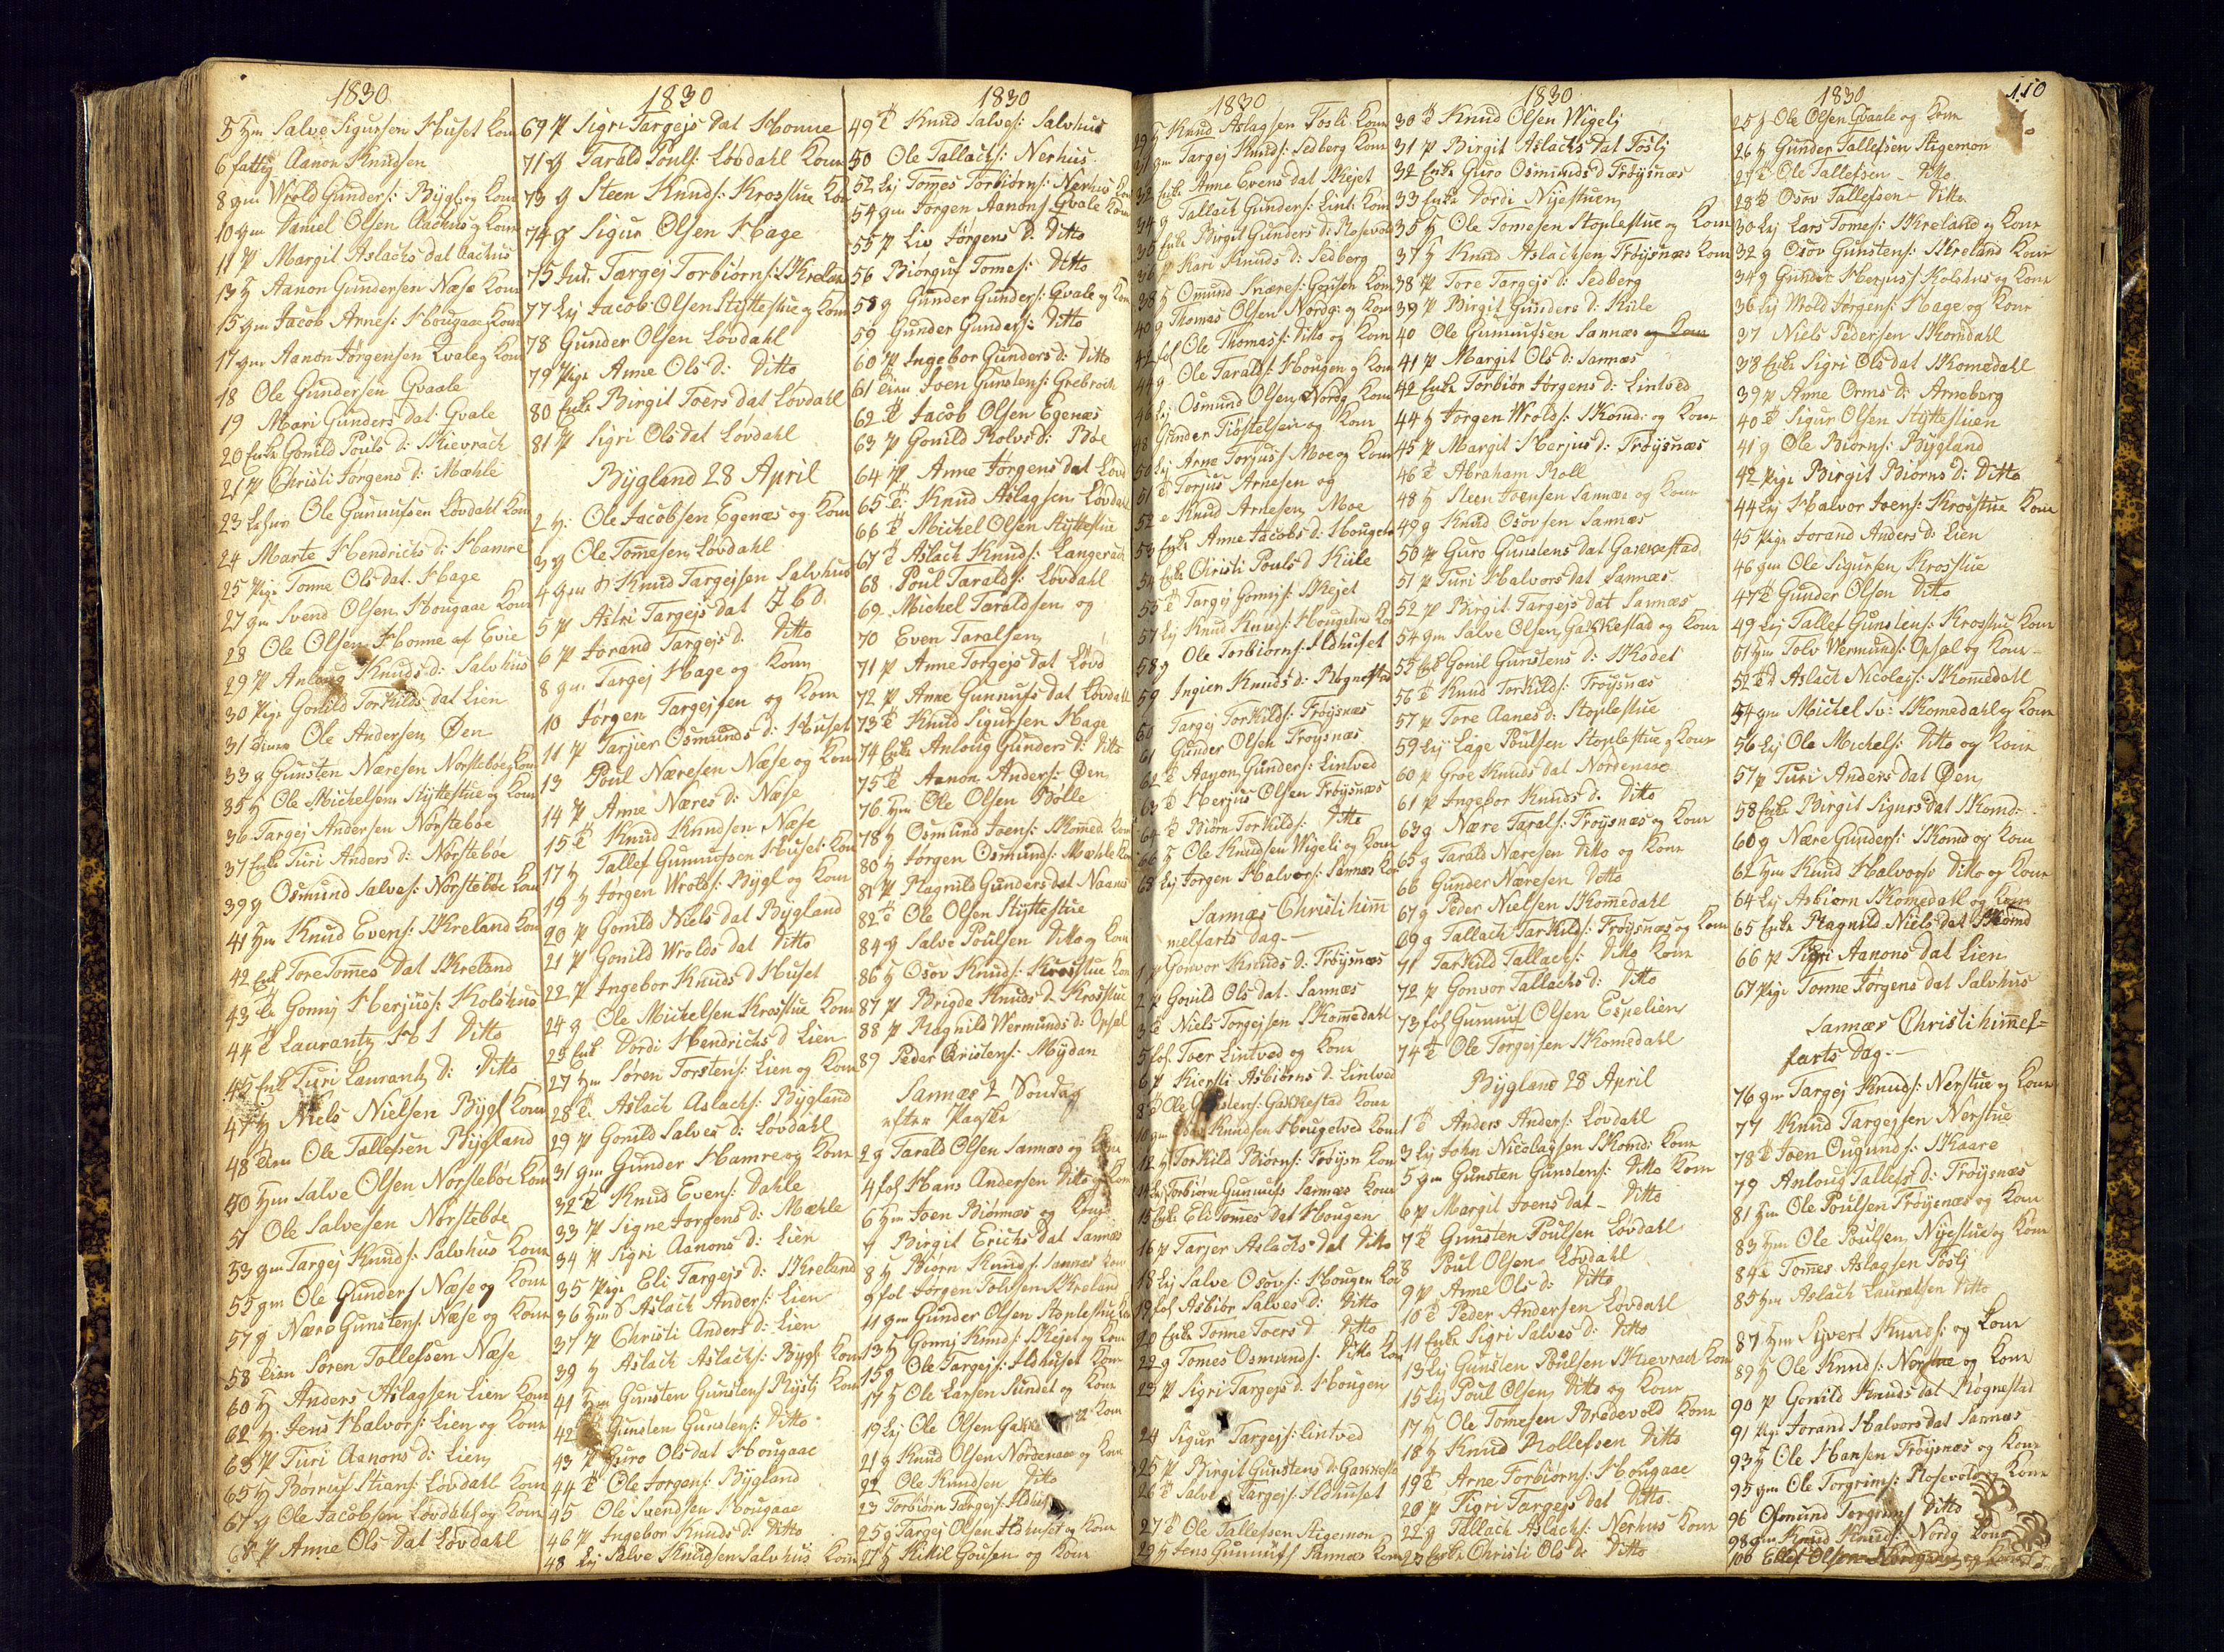 1830
5 Hm Salve Sigursen Huset Kon
6 fattig Aanon Knudsen
8 gm Wrold Gunders: Bÿgl og Kone
10 gm Daniel Olsen Aachus og Kone
11 P Margit Aslachs dat Aachus
13 H Aanon Gundersen Næse Kone
15 gm Jacob Arnes: Hougaae Kone
17 gm Aanon Jörgensen Qvale og Kone
18 Ole Gundersen Gvaale
19 Mari Gunders dat: Gvale
20 Enke Gonild Pouls d: Skievrach
21 P Christi Jörgens d: Mæhle
23 Ole Gunnufsen Lövdahl Kon
24 Marte Hendrichs d: Hamre
25 Pige Tonne Ols dat. Hage
27 gm Svend Olsen Hougaae Kone
28 Ole Olsen Honne af Evie
29 P Anloug Knuds d: Salvhus
30 Pige Gonild Torkilds dat Lien
31 Ole Andersen Öen
33 g Gunsten Næresen Norsteböe og Kone
35 H Ole Michelsen Stÿttestue og Kone
36 Targej Andersen Norsteböe
37 Enke Turi Anders d: Norsteböe
39 g Osmund Salves: Norsteböe Kone
41 Hm Knud Evens: Skreland Kone
42 Enk Tore Tomes dat Skreland
43 Gonnj Herjus: Kolshus
44 Laurantz Ditto
45 Enk Turi Laurantz d: Ditto
47 H Niels Nielsen Bÿgl Kone
48 Ole Tallefsen Bÿgland
50 Hm Salve Olsen Norsteböe Kone
51 Ole Salvesen Norsteböe
53 gm Targej Knuds: Salvhus Kone
55 gm Ole Gunders Næse og Kone
57 g Nære Gunstens: Næse og Kone
58 Sören Tollefsen Næse
60 H Anders Aslagsen Lien Kone
62 H. Jens Halvors: Lien og Kone
63 P Turi Aanons d: Lien
65 H Stians: Lövdahl Kone
67 g Ole Jacobsen Lövdahl og Kone
68 P Anne Ols dat Lövdahl
1830
69 P Sigri Targejs dat Honne
71 g Tarald Pouls: Lövdahl Kone
73 g Steen Knuds: Krosstue Kon
74 g Sigur Olsen Hage
75 Targej Torbiörns: Skreland
77 Lej Jacob Olsen Stÿttestue og Kone
78 Gunder Olsen Lövdahl
79 Pige Anne Ols d: Ditto
80 Enke Birgit Toers dat Lövdahl
81 P Sigri Ols dat Lövdahl
Bÿgland 28 April
2 H: Ole Jacobsen Egenæs og Kone
3 g Ole Tomesen Lövdahl
4 gm Knud Targejsen Salvhus
5 P Astri Targejs dat Ibd
6 P Jorand Targejs d. Ditto
8 gm Targej Hage og Kone
10 Jörgen Targejsen og Kone
11 P Tarjier Osmunds d: Huset
13 Poul Næresen Næse og Kone
14 P Anne Næres d: Næse
15 Knud Knudsen Næse
17 H Tallef Gunnufsen Huset Kone
19 H Jorgen Wrolds: Bÿgl og Kone
20 P Gonild Niels dat Bÿgland
21 P Gonild Wrolds dat Ditto
22 P Ingebor Knuds d Huset
24 g. Ole Michelsen Krosstue Kone
25 Enk Dordi Hendrichs d Lien
27 Hm Sören Torstens: Lien og Kone
28 Aslach Aslachs: Bÿgland
29 P Gonild Salves d: Lövdahl
31 gm Gunder Hamre og Kone
32 Knud Evens: Dahle
33 P Signe Jorgens d: Mæhle
34 P Sigri Aanons d: Lien
35 Pige Eli Targejs d: Skreland
36 Hm Aslach Anders: Lien
37 P Christi Anders d: Lien
39 H Aslach Aslachs: Bÿgl: Kone
41 Hm Gunsten Gunstens Kone
42 Gunsten Gunstens: Ditto
43 P Guro Ols dat Hougaae
44 Ole Jorgens: Bÿgland
45 Ole Svendsen Hougaae
46 P Ingebor Knuds d: Ditto
48 Lej Salve Knudsen Salvhus Kone
1830
49 Knud Salves: Salvhus
50 Ole Tallachs: Nerhus
52 Lej Tomes Torbiörns: Nerhus Kone
54 gm Jorgen Aanons Qvale Kone
55 P Liv Jörgens D. Ditto
56 Biörguf Tomes: Ditto
58 g Gunder Gunders: Gvale og Kone
59 Gunder Gunders: Ditto
60 P Ingebor Gunders d: Ditto
61 Joen Gunstens: Grebrock
62 Jacob Olsen Egenæs
63 P Gonild Rolvs d: Böe
64 P Anne Jörgens dat Lövd
65 Knud Aslagsen Lövdahl
66 Michel Olsen Stÿttestue
67 Aslach Knuds: Langerach
68 Poul Taralds: Lövdahl
69 Michel Taraldsen og
70 Even Taralsen
71 P Anne Torgejs dat Lövd
72 P Anne Gunnufs dat Lövdahl
73 Knud Sigursen Hage
74 Enke Anloug Gunders d: Ditto
75 Aanon Anders: Öen
76 Hm Ole Olsen Bölle
78 H Osmund Joens: Skomed. Kone
80 H Jörgen Osmunds: Mæhle Kone
81 P Ragnild Gunders dat Naanes
82 Ole Olsen Stÿttestue
84 g Salve Poulsen Ditto og Kone
86 H Osov Knuds: Krosstue Kone
87 P Brigde Knuds d. Krosstue
88 P Ragnild Wermunds d: Opsal
89 Peder Christens: Mÿdan
Sannæs 2 Söndag
efter Paaske
2 g Tarald Olsen Sannæs og Kone
4 fol Hans Andersen Ditto og Kone
6 Hm Joen Biörnnæs og Kone
7 Birgit Erichs dat Sannæs
8 H Biörn Knuds: Sannæs Kone
9 fol Jörgen Skreland
11 gm Gunder Olsen Stoplestue Kone
13 H Gonnj Knuds: Skejet og Kone
15 g Ole Targejs: Ildhuset Kone
17 H Ole Larsen Sundet og Kone
19 Lej Ole Olsen Kone
21 g Knud Olsen Nordenaae og Kone
22 Ole Knudsen Ditto
23 Torbiörn Targejs: Ildhus
25 g Targej Olsen Ildhuset og Kone
27 H Kittil Gousen og Kone
1830
29 H Knud Aslagsen Fosli Kone
31 gm Targej Knuds: Sedberg Kone
32 Enke Anne Evens dat Skejet
34 g Tallach Gunders: Lint: Kone
35 Enke Birgit Gunders d: Rosevold
36 P Kari Knuds d: Sedberg
38 H Omund Kone
40 g Thomas Olsen Nordg: og Kone
42 fol Ole Thomas: Ditto og Kone
44 g Ole Taralds: Hougen og Kone
46 Lej Osmund Olsen Nordg Kone
48 Gunder Tiöstelsen og Kone
50 Lej Arne Torjuss: Moe og Kone
51 Torjus Arnesen og
52 Knud Arnesen Moe
53 Enke Anne Jacobs d: Hougen
54 Enke Christi Pouls d Kiile
55 Targej Gonnjs: Skejet
57 Lej Knud Knuds: Hougelved Kon
58 g Ole Torbiörns: Ildhuset
59 Ingier Knuds d: Rögnestad
60 Targej Torkilds: Fröÿsnæs
61 Gunder Olsen Fröÿsnæs
62 Aanon Gunders: Lintved
63 Herjus Olsen Fröÿsnæs
64 Biörn Torkilds: Ditto
66 H Ole Knudsen Wigeli og Kone
68 Lej Jorgen Halvors: Sannæs Kon
Sannæs Christi him
melfarts dag
1 P Gonvor Knuds d: Fröÿsnæs
2 P Gonild Ols dat Sannæs
3 Niels Torgejsen Skomedahl
5 fol. Toer Lintved og Kone
6 P Kiersti Asbiörns d: Lintved
8 Ole Gakkestad Kone
10 gm Knudsen Hougelved Kone
12 H Torkild Biörns: Fröÿsn Kone
14 Lej Torbiörn Gunnufs Sannæs Kone
15 Enke Eli Tomes dat Hougen
16 P Tarjer Aslachs dat Ditto
18 Lej Salve Osovs: Hougen Kon
19 fol Asbiör Salves d: Ditto
20 Enke Tonne Toers d Ditto
22 g Tomes Osmunds: Ditto Kon
23 P Sigri Targejs d. Hougen
24 Sigur Targejs: Lintved
25 P Birgit Gunstens d: Gakkesta
26 Salve Targejs: Ildhuset
27 Ole Tallefsen Stigemon
29 H Jens Gunnufs Sannæs Kone
1830
30 Knud Olsen Wigeli
31 P Birgit Aslachs dat Foslj
32 Enke Guro Osmunds d Fröÿsnæs
33 Enke Dordi Nÿestuen
35 H Ole Tomesen Stoplestue og Kone
37 H Knud Aslachsen Fröÿsnæs Kone
38 P Tore Targejs d: Sedberg
39 P Birgit Gunders d: Kiile
40 Ole Gunnufsen Sannæs og Kone
41 P Margit Ols d: Sannæs
42 Enke Torbiör Jörgens d: Lintved
44 H Jörgen Wrolds: Skomd: og Kone
45 P Margit Herjus d: Fröÿsnæs
46 Abraham Roll
48 H Steen Joensen Sannæs og Kone
49 g Knud Osovsen Sannæs
50 P Guro Gunstens dat Gakkestad
51 P Turi Halvors dat Sannæs
52 P Birgit Targejs dat Sannæs
54 gm Salve Olsen Gakkestad og Kone
55 Enk Gonil Gunstens d: Skodet
56 Knud Torkilds: Fröÿsnæs
57 P Tore Aanes d: Stoplestue
59 Lej Lage Poulsen Stoplestue og Kone
60 P Groe Knuds dat Nordenaae
61 P Ingebor Knuds d: Ditto
63 g Nære Tarals: Fröÿsnæs og Kone
65 g Tarald Næresen Ditto og Kone
66 Gunder Næresen Ditto
67 g Peder Nielsen Skomedahl
69 g Tallach Tarkilds: Fröÿsnæs og Kone
71 Tarkild Tallachs: Ditto Kone
72 P Gonvor Tallachs d: Ditto
73 fol Gunnuf Olsen Espelien
74 Ole Torgejsen Skomedahl
Bÿgland 28 April
1 Anders Anders: Lövdahl
3 Lej John Nicolaysen Skomd: Kone
5 gm Gunsten Gunstens: Ditto Kone
6 P Margit Joens dat Ditto
7 Gunsten Poulsen Lövdahl
8 Poul Olsen Lövdahl
9 P Anne Ols d: Ditto
10 Peder Andersen Lövdahl
11 Enke Sigri Salves d: Ditto
13 Lej Gunsten Poulsen Skievrach Kon
15 Lej Poul Olsen Ditto og Kone
17 H Ole Tomesen Bredevold Kone
18 H Knud Rollefsen Ditto
19 Arne Torbiörns: Hougaae
20 P Sigri Targejs dat Ditto
22 g Tallach Aslachs: Nerhus Kone
23 Enke Christi Ols d: Ditto
110
1830
25 H Ole Olsen Gvaale og Kone
26 H Gunder Tallefsen Stigemon
27 Ole Tallefsen Ditto
28 Osov Tallefsen Ditto
30 Lej Lars Tomes: Skreland og Kone
32 g Osov Gunstens: Skreland Kone
34 g Gunder Herjuss Kolshus og Kone
36 Lej Wrold Jörgens: Hage og Kone
37 Niels Pedersen Skomdahl
38 Enke Sigri Ols dat Skomedahl
39 P Anne Orms d: Arneberg
40 Sigur Olsen Stÿttestuen
41 g Ole Biörns: Bÿgland
42 Pige Birgit Biörns d: Ditto
44 Lej Halvor Joens: Krosstue Kone
45 Pige Jorand Anders d: Lien
46 gm Ole Sigursen Krosstue
47 Gunder Olsen Ditto
49 Lej Tallef Gunstens: Krosstue Kone
51 Hm Tolv Wermunds: Opsal og Kone
52 Aslach Nicolays: Skomedahl
54 gm Michel Skomedahl og Kone
56 Lej Ole Michels: Ditto og Kone
57 P Turi Anders dat Öen
58 Enke Birgit Sigurs dat Skomd:
60 g Nære Gunders: Skomd og Kone
62 Hm Knud Halvors: Ditto og Kone
64 Lej Asbiörn Skomedahl og Kone
65 Enke Ragnild Niels dat Skomd
66 P Sigri Aanons dat Lien
67 Pige Tonne Jörgens dat Salvhus
Sannæs Christi himel=
farts dag
76 gm Targej Knuds: Nerstue og Kone
77 Knud Targejsen Nerstue
78 Joen Ougunds: Skaare
79 Anloug Tallefs d: Fröÿsnæs
81 Hm Ole Poulsen Fröÿsnæs og Kone
83 Hm Ole Poulsen Nÿestue og Kone
84 Tomes Aslagsen Foslj
85 Hm Aslach Lauralsen Ditto
87 Hm Sÿvert Knuds: og Kone
89 H Ole Knuds: Norstue og Kone
90 P Gonild Knuds dat Rögnestad
91 Pige Jorand Halvors dat Sannæs
93 H Ole Hansen Fröÿsnæs og Kone
95 gm Ole Torgrims: Rosevold og Kone
96 Osmund Torgrims Ditto
98 gm Knud Knuds: Nordg Kone
100 Ellef Olsen Nordgaar og Kone